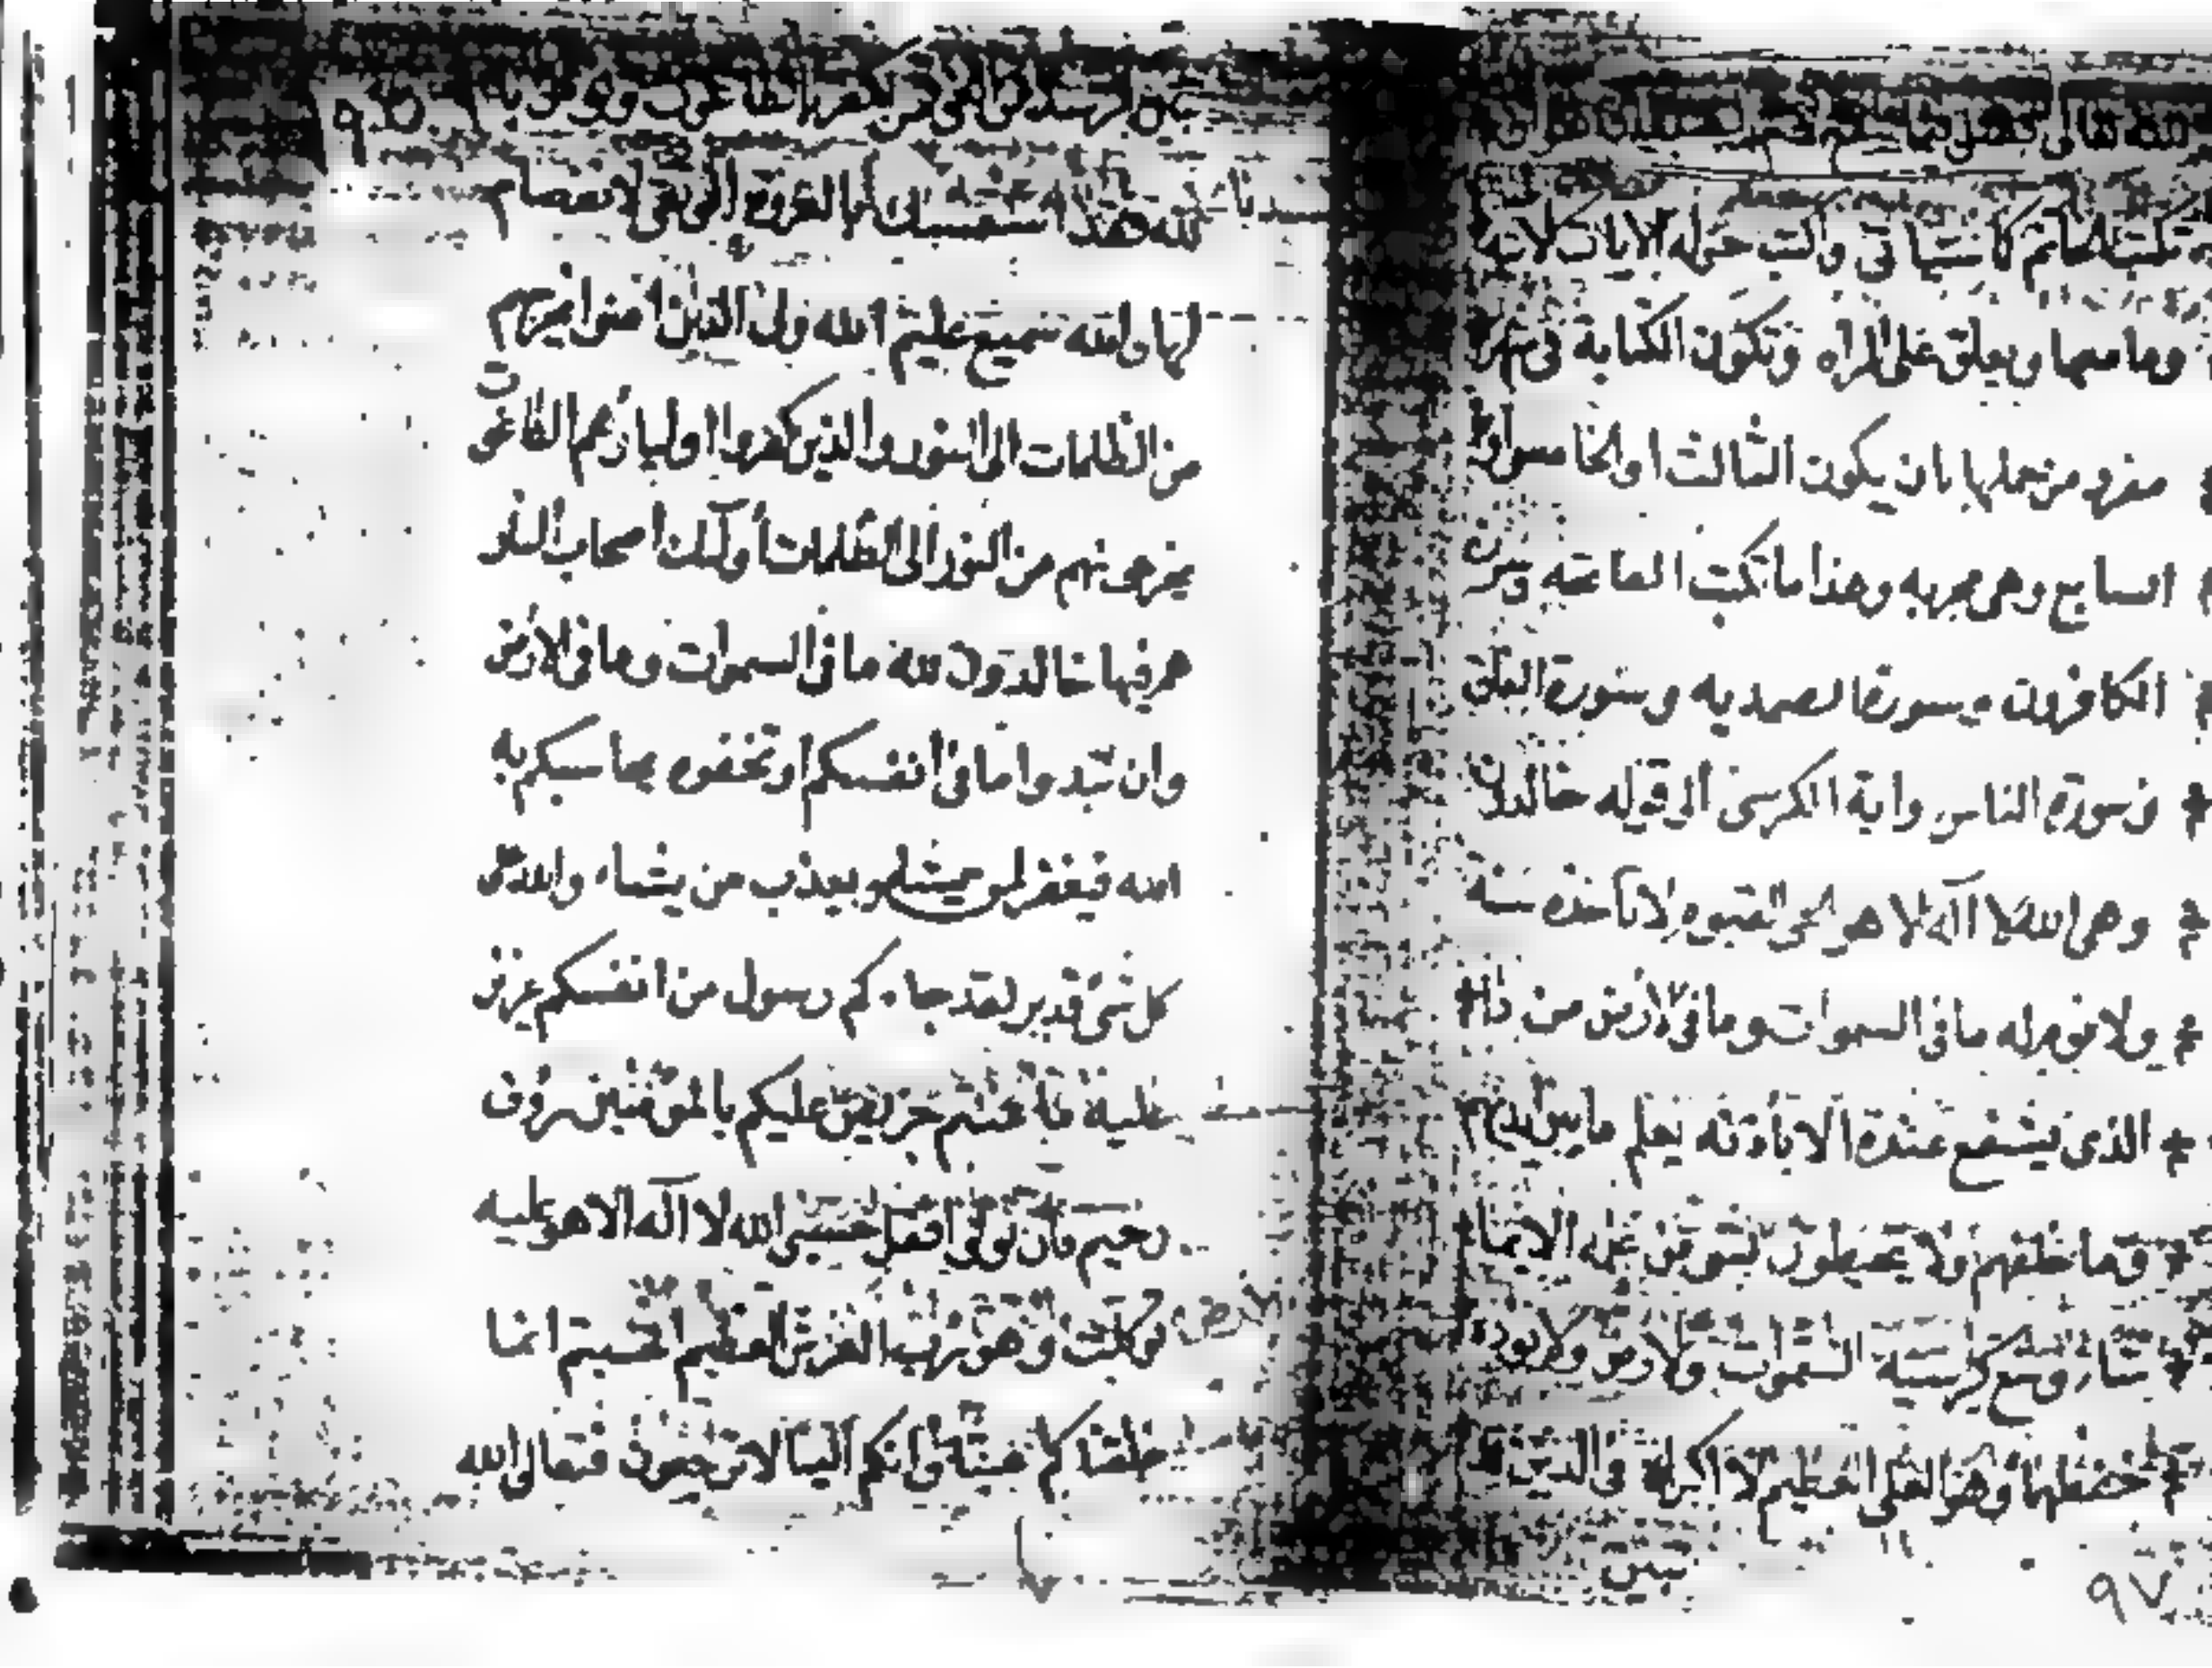 الله تعالى
تكتب الخاتم كا سياتى واكتب حوله الايات لاته
وما معها ويعلق على المراه وتكون الكتابة فى شهر
مفرد من حملها بان يكون الثالث او الخامس او
السابع وهى مجربه وهذا ما تكتب الفاتحه وسورة
الكافرون وسورة الصمديه وسورة الفلق
وسورة الناس واية الكرسى الى قوله خالدون
وهى الله لا اله الا هو الحى القيوم لا تاخذه سنة
ولا نوم له ما فى السموات وما فى الارض من ذا
الذى يشفع عنده الا باذنه يعلم ما بين ايديهم
وما خلفهم ولا يحيطون بشىء من علمه الا بما
شاء وسع كرسيه السموات ولارض ولا يوده
حفضهما وهو العلى العظيم لا اكراه فى الدين قد
تبين
٩٧
تبين الرشد من الغى فمن يكفر بالطاغوت ويومن با
لله فقد استمسك بالعروة الوثقى لا نفصام
لها والله سميع عليم الله ولى الذين امنوا يخرجهم
من الظلمات الى النور والذين كفروا اولياؤهم الطاغوت
يخرجونهم من النور الى الظلمات أولئك أصحاب النار
هم فيها خالدون لله ما فى السموات وما فى الارض
وان تبدوا ما فى أنفسكم او تخفوه يحاسبكم به
الله فيغفر لمن يشاء ويعذب من يشاء والله على
كل شئ قدير لقد جاءكم رسول من انفسكم عزيز
عليه ما عنتم حريص عليكم بالمومنين روف
رحيم فان تولو فقل حسبى الله لا اله الا هو عليه
توكلت وهو رب العرش العظيم افحسبتم انما
خلقناكم عبثا وانكم الينا لا ترجعون فتعالى الله